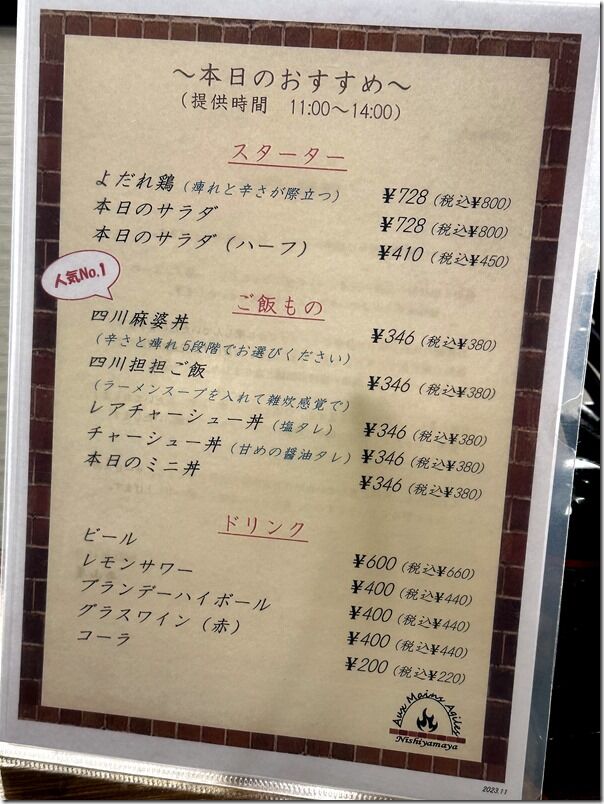 ～本日のおすすめ～
（提供時間　11:00～14:00）
スターター
よだれ鶏（痺れと辛さが際立つ） ¥728（税込¥800）
本日のサラダ ¥728（税込¥800）
本日のサラダ（ハーフ） ¥410（税込¥450）
人気No.1
ご飯もの
四川麻婆丼 ¥346（税込¥380）
（辛さと痺れ5段階でお選びください）
四川担担ご飯 ¥346（税込¥380）
（ラーメンスープを入れて雑炊感覚で）
レアチャーシュー丼（塩タレ） ¥346（税込¥380）
チャーシュー丼（甘めの醤油タレ） ¥346（税込¥380）
本日のミニ丼 ¥346（税込¥380）
ドリンク
ビール ¥600（税込¥660）
レモンサワー ¥400（税込¥440）
ブランデーハイボール ¥400（税込¥440）
グラスワイン（赤） ¥400（税込¥440）
コーラ ¥200（税込¥220）
Aux Mains Agiles
Nishiyamaya
2023.11